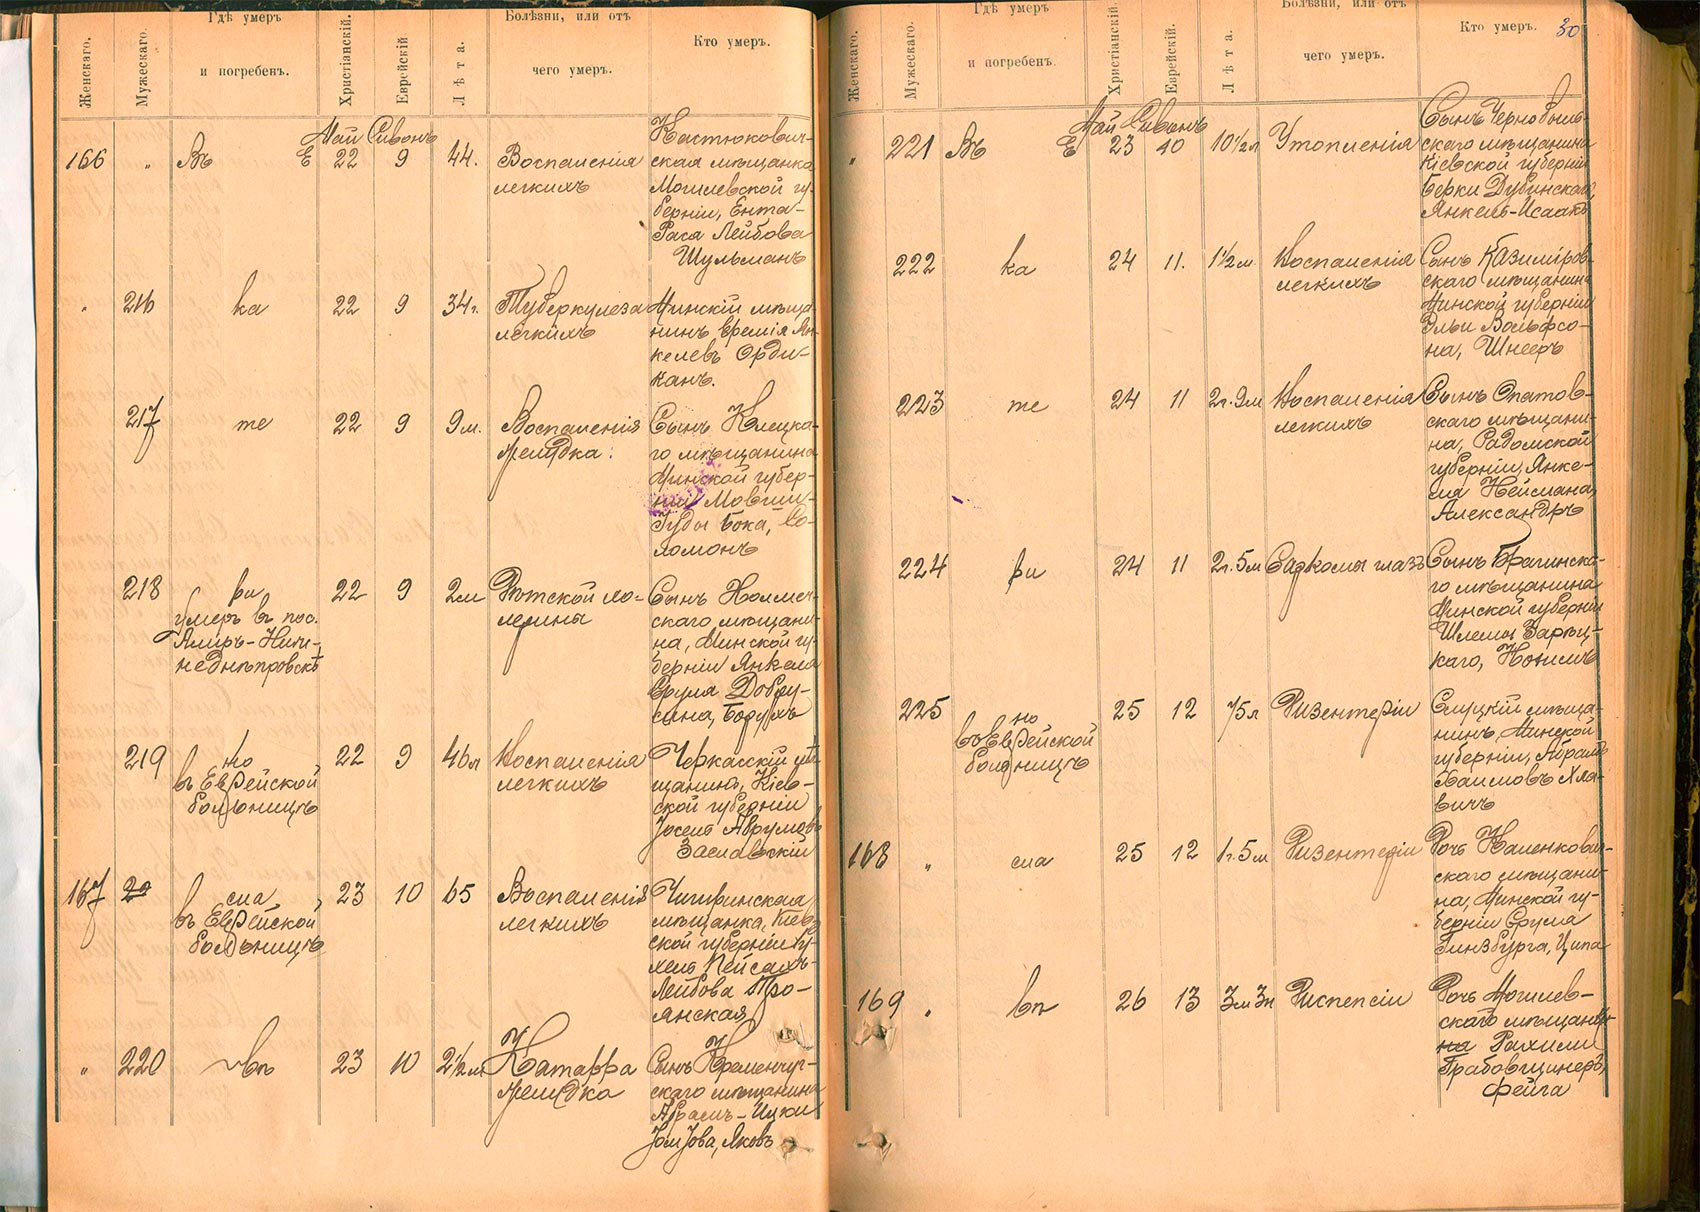 Женскаго.
Мужескаго.
Гдѣ умеръ
и погребенъ.
Христіанскій.
Еврейскій
Лѣта.
Болѣзни, или отъ
чего умеръ.
Кто умеръ.
Май Сивонъ
166 " Въ Е 22 9 44. Воспаленія
легкихъ
Костюкович-
ская мѣщанка
Могилевской гу-
берніи, Ента-
Рася Лейбова
Шульманъ
" 216 ка 22 9 34 г. Туберкулеза
легкихъ
Минскій мѣща-
нинъ Еремія Ян-
келевъ Орди-
канъ.
217 те 22 9 9 м. Воспаленія
желудка.
Сынъ Клецка-
го мѣщанина
Минской губер-
ніи Мовши-
Іуды Бока, Со-
ломонъ
218 ри 22 9 2 м
умеръ въ пос.
Амуръ-Нижн-
неднѣпровскъ
Дѣтской хо-
лерины
Сынъ Холмеч-
скаго мѣщани-
на, Минской гу-
берніи Янкеля
Сруля Добру-
сына, Борухъ
219 но 22 9 46 л
въ Еврейской
больницѣ
Воспаленія
легкихъ
Черкасскій мѣ-
щанинъ, Кіев-
ской губерніи
Іосель Аврумовъ
Заславскій
167 сла 23 10 65
въ Еврейской
больницѣ
Воспаленія
легкихъ
Чигиринская
мѣщанка, Кіев-
ской губерніи Ру-
хель Пейсахъ-
Лейбова Тро-
янская
" 220 въ 23 10 2 1/2 м Катарра
желудка
Сынъ Кременчуг-
скаго мѣщанина
Абрамъ-Ицки
Яковъ
Женскаго.
Мужескаго.
Гдѣ умеръ
и погребенъ.
Христіанскій.
Еврейскій.
Лѣта.
Болѣзни, или отъ
чего умеръ.
Кто умеръ.
30
Май Сивонъ
" 221 Въ Е 23 10 10 1/2 л Утопленія
Сынъ Чернобыль-
скаго мѣщанина
Кіевской губерніи
Берки Дубинскаго,
Янкель-Исаакъ
222 ка 24 11. 1 1/2 м. Воспаленія
легкихъ
Сынъ Казиміров-
скаго мѣщанина
Минской губерніи
Эльи Вольфсо-
на, Шнееръ
223 те 24 11 2 г. 9 м Воспаленія
легкихъ
Сынъ Опатов-
скаго мѣщани-
на, Радомской
губерніи, Янке-
ля Неймана,
Александръ
224 ри 24 11 2 г. 5 м Саркомы глазъ
Сынъ Брагинска-
го мѣщанина
Минской губерніи
Шлемы Зарѣц-
каго,
225 но 25 12 75 л Дизентеріи
въ Еврейской
больницѣ
Слуцкій мѣща-
нинъ, Минской
губерніи, Абрамъ
Хаимовъ Хла-
вичъ
168 " сла 25 12 1 г. 5 м Дизентеріи
Дочь Каленкович-
скаго мѣщани-
на, Минской гу-
берніи Сруля
Гинзбурга, Ципа
169 " въ 26 13 3 м 3 н Диспепсіи
Дочь Могилев-
скаго мѣщани-
на Рахили
Грабовщинеръ,
Фейга